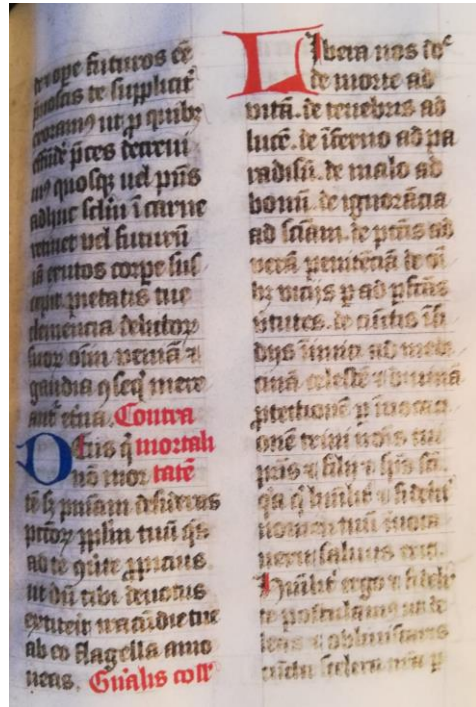 de ope futuros eē
p̄noscis te supplicit̄
exoram⁹ ut p quibꝫ
effūde p̄ces decreui
m⁹ quosqꝫ uel pn̄s
adhuc sclm̄ ī carne
retinet uel futurū
iā exutos corpe sus
cepit pietatis tue
clemencia delictoꝝ
suoꝝ oīm ueniā ⁊
gaudia ꝯseqͥ mere
ant̄ etna. Contra
Deus qͥ mortali
nō mor tatē
tē sꝫ pn̄iam desideras
pctoꝝ pplm̄ tuū qs
ad te ꝯūte ꝓpicius
ut dū tibi deuotus
extiterit iracūdie tue
ab eo flagella amo
ueas. Gn̄alis coll̄
Libera nos do͞e
de morte ad
uitā. de tenebris ad
lucē. de īferno ad pa
radisū. de malo ad
bonū. de ignorācia
ad sciām. de pctīs ad
uerā penitēciā de oī
bꝫ uicijs p ad pfctās
uirtutes. de cūctis
dijs ad mede
cinā celestē ⁊ diuinā
ptectionē p īuocaci
onē trini nōis tui
pris ⁊ filij ⁊ sps sci.
qͥa qͥ humilit̄ ⁊ fidelit̄
nomen tuū inuoca
uerit saluus erit.
Humilit̄ ergo ⁊ fideli
te postulamus ut de
leas ⁊ obliuiscaris
cūcta scelera nr̄a p